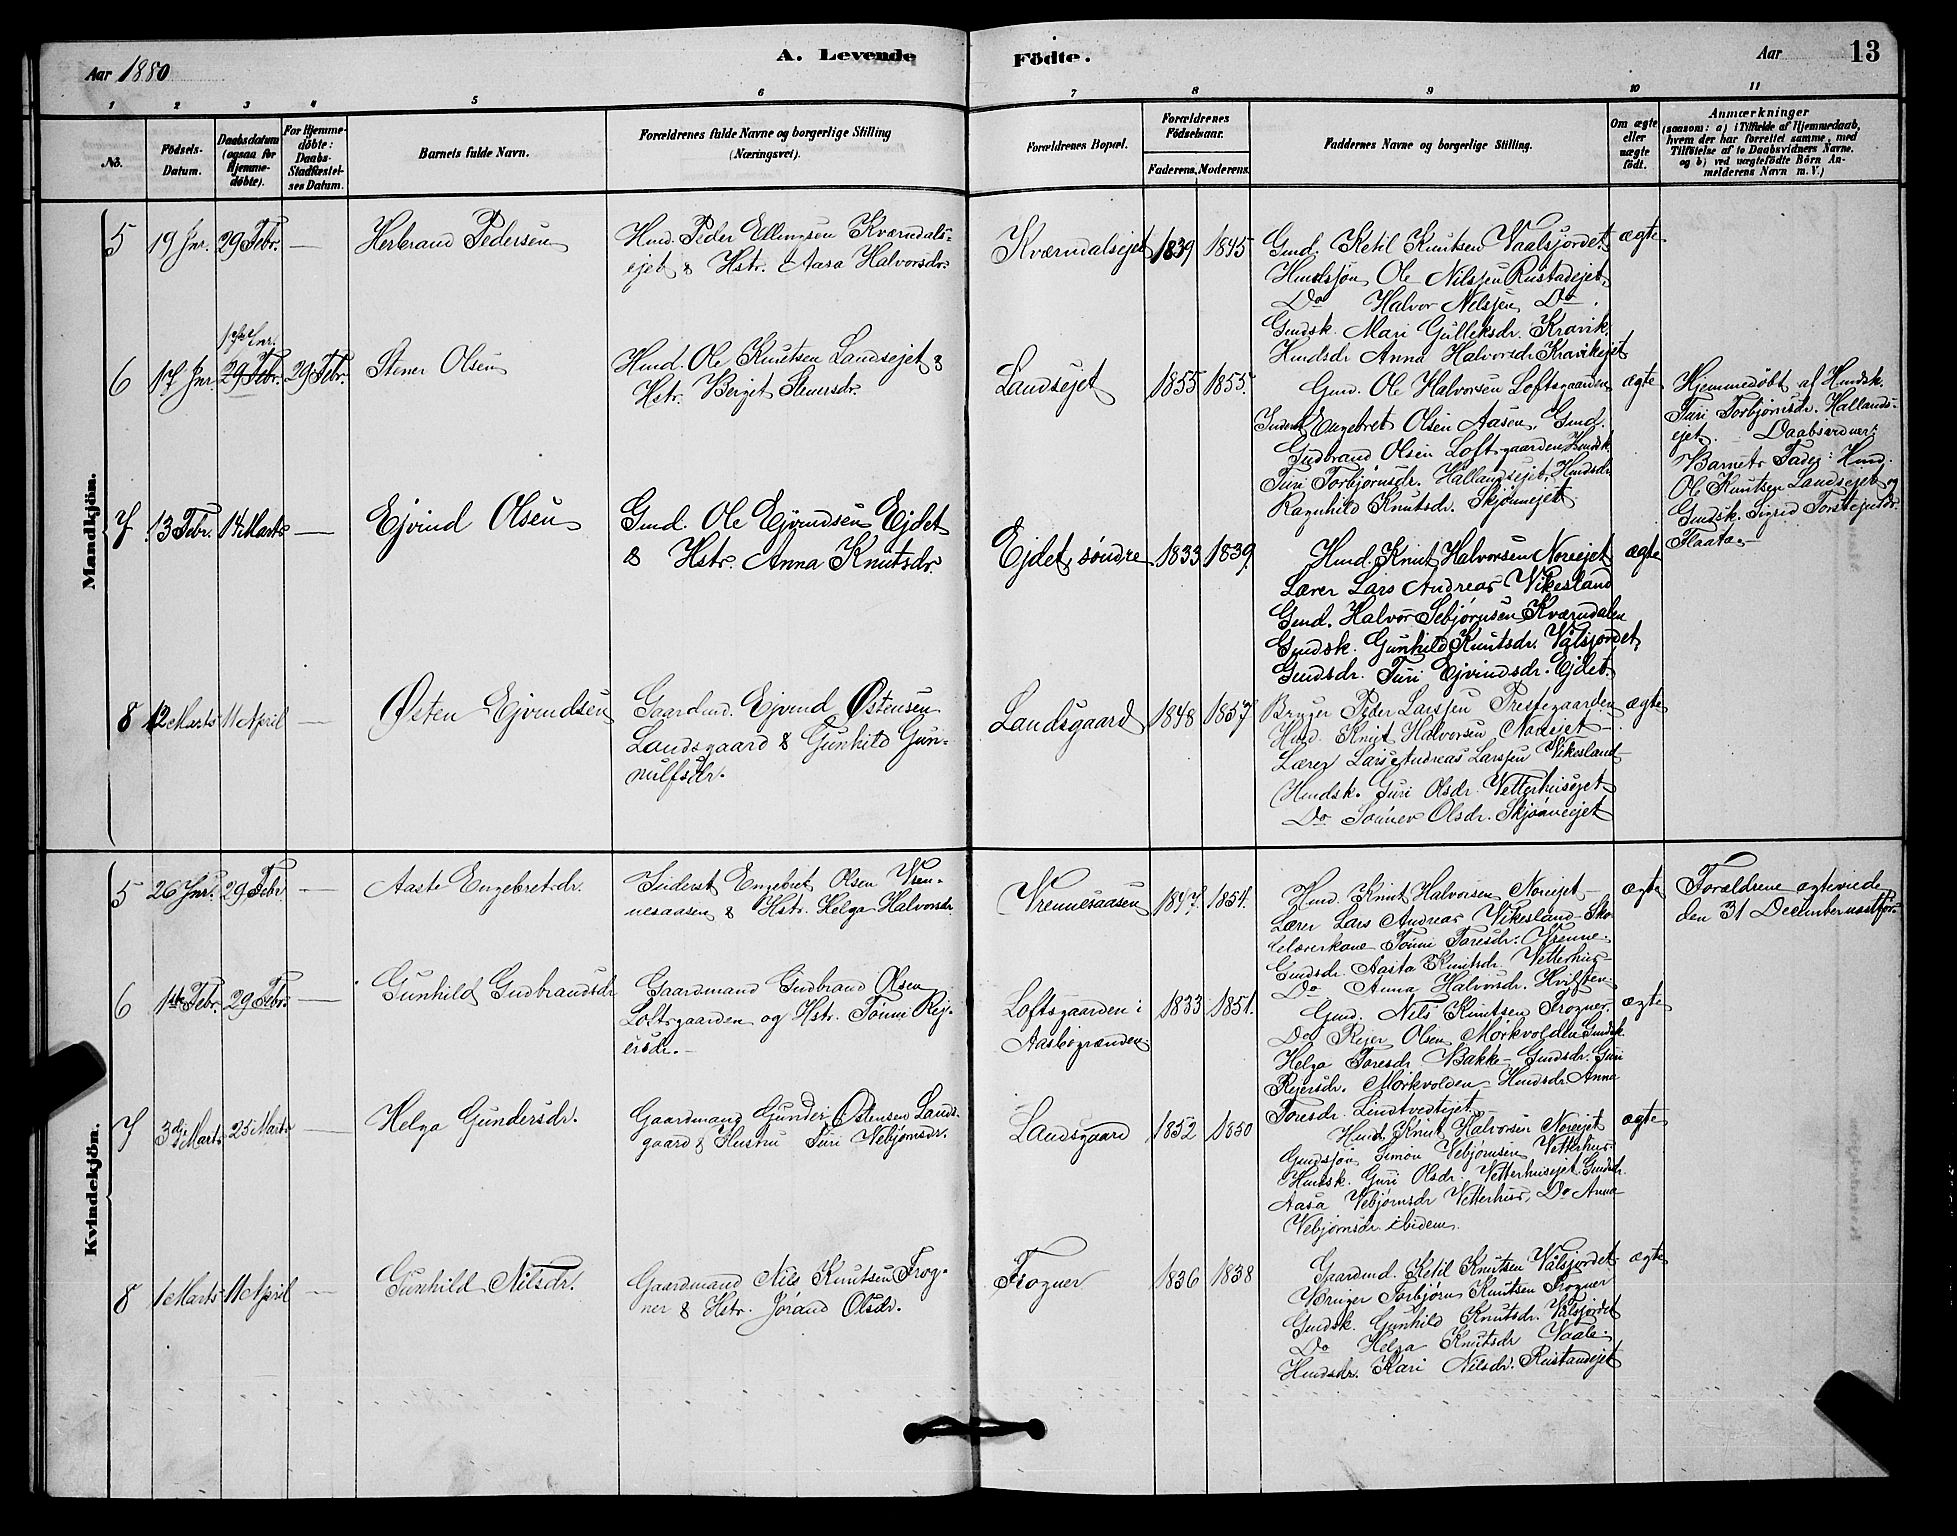 Aar 1880
A. Levende Födte.
Aar
13
1 2 3 4 5 6 7 8 9 10 11
No.
Födsels-
Datum.
Daabsdatum
(ogsaa for
Hjemme-
döbte).
For Hjemme-
döbte:
Daabs-
Stadfæstel-
ses Datum.
Barnets fulde Navn.
Forældrenes fulde Navne og borgerlige Stilling
(Næringsvei).
Forældrenes Bopæl.
Forældrenes
Födselsaar.
Faderens. Moderens.
Faddernes Navne og borgerlige Stilling.
Om ægte
eller
uægte
födt.
Anmærkninger
(saasom: a) i Tilfælde af Hjemmedaab,
hvem der har forrettet samme, med
Tilföielse af to Daabsvidners Navne.
og b) ved uægtefödte Börn An-
melderens Navn m. V.)
Mandkjön.
5 19 Jnr. 29 Febr. —
Herbrand Pedersen
Hmd. Peder Ellingsen Kværndals-
ejet & Hstr. Aasa Halvorsdr.
Kværndalsejet 1839 1845
Gmd. Ketil Knutsen Vaalsjordet
Hmdssön Ole Nilssen Rustadejet,
Do Halvor Nilssen Do.
Gmdsk. Mari Gulleksdr. Kravik.
Hmdsdr Anna Halvorsdr Kravikejet
ægte
6 17 Jnr. 29 Febr. 29 Febr.
Stener Olsen
Hmd. Ole Knutsen Landsejet &
Hstr. Berget Stenersdr.
Landsejet 1855 1855.
Gmd. Ole Halvorsen Loftsgaarden
Inderst Engebret Olsen Aasen, Gmd.
Gudbrand Olsen Loftsgaarden Hmdsk
Turi Torbjörnsdr. Hallandsejet, Hmdsdr
Ragnhild Knutsdr. Skjönnejet
ægte
Hjemmedöbt af Hmdsk.
Turi Torbjörnsdr. Hallands-
ejet. Daabsvidner:
Barnets Fader: Hmd.
Ole Knutsen Landsejet og
Gmdsk. Sigrid Torstejnsdr.
Flaata.
7 13 Febr. 14 Marts —
Ejvind Olsen
Gmd. Ole Ejvindsen Ejdet
& Hstr. Anna Knutsdr.
Ejdet, söndre 1833 1839.
Hmd. Knut Halvorsen Noreejet
Lærer Lars Andreas Vikesland
Gmd. Halvor Sebjörnsen Kværndalen
Gmdsk. Gunhild Knutsdr. Vålsjordet,
Gmdsdr. Turi Ejvindsdr. Ejdet.
ægte
8 12 Marts 11 April —
Östen Ejvindsen
Gaardmd. Ejvind Östensen
Landsgaard & Gunhild Gun-
nulfsdr.
Landsgaard 1848 1857
Bruger Peder Larssen Prestegaarden
Hmd. Knut Halvorsen Noreejet—
Lærer Lars Andreas Larssen Vikesland—
Hmdsk. Guri Olsdr. Vetterhusejet—
Do Sönnev Olsdr. Skjönneejet
ægte
Kvindekjön.
5 26 Jnr. 29 Febr —
Aaste Engebretsdr.
Inderst Engebret Olsen Vren-
nesaasen & Hstr. Helga Halvorsdr
Vrennesaasen 1847. 1854.
Hmd. Knut Halvorsen Noreejet—
Lærer Lars Andreas Vikesland— Sko-
lelærerkone Tönni Toresdr. Vrenne.
Gmdsdr. Aasta Knutsdr. Vetterhus—
Do Anna Halvorsdr.
ægte
Forældrene ægteviede
den 31 December
6 1ste Febr. 29 Febr. —
Gunhild Gudbrandsdr
Gaardmand Gudbrand Olsen
Loftsgaarden og Hstr. Tönni Rej-
ersdr.—
Loftsgaarden i
Aasbögrænden 1833 1851.
Gmd. Nils Knutsen Frogner,
Do Rejer Olsen Morkvolden Gmdsk.
Helga Toresdr Bakke— Gmdsdr. Guri
Rejersdr. Morkvolden— Hmdsdr Anna
Toresdr. Lindtvedtejet
ægte
7 3die Marts 25 Marts —
Helga Gundersdr.
Gaardmand Gunder Östensen Lands-
gaard & Hustru Turi Vebjörnsdr.
Landsgaard 1852 1850
Hmd. Knut Halvorsen Noreejet
Gmdssön Simon Vebjörnsen Vetterhus
Hmdsk. Guri Olsdr. Vetterhusejet. Gmdsdr.
Aasa Vebjörnsdr Vetterhus, Do Anna
Vebjörnsdr. ibidem.
ægte
8 1 Marts 11 April —
Gunhild Nilsdr.
Gaardmand Nils Knutsen Frog-
ner & Hstr. Jörand Olsdr.
Frogner 1836 1838
Gaardmd. Ketil Knutsen Vålsjordet
Bruger Torbjörn Knutsen Frogner
Gmdsk. Gunhild Knutsdr. Vålsjordet
Do Helga Knutsdr Vaale.
Hmdsdr. Kari Nilsdr. Rustandejet
ægte